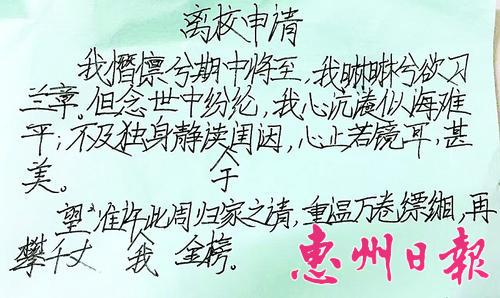 离校申请
我懵懔兮期中将至，我啉啉兮欲习
兰章。但念世中纷纶，我心沉漭似海难
平；不及独身静读闺闼，心止若镜耳，甚
美。于
望准许此周归家之请，重温万卷缥缃，再
攀千丈我金榜。
惠州日報